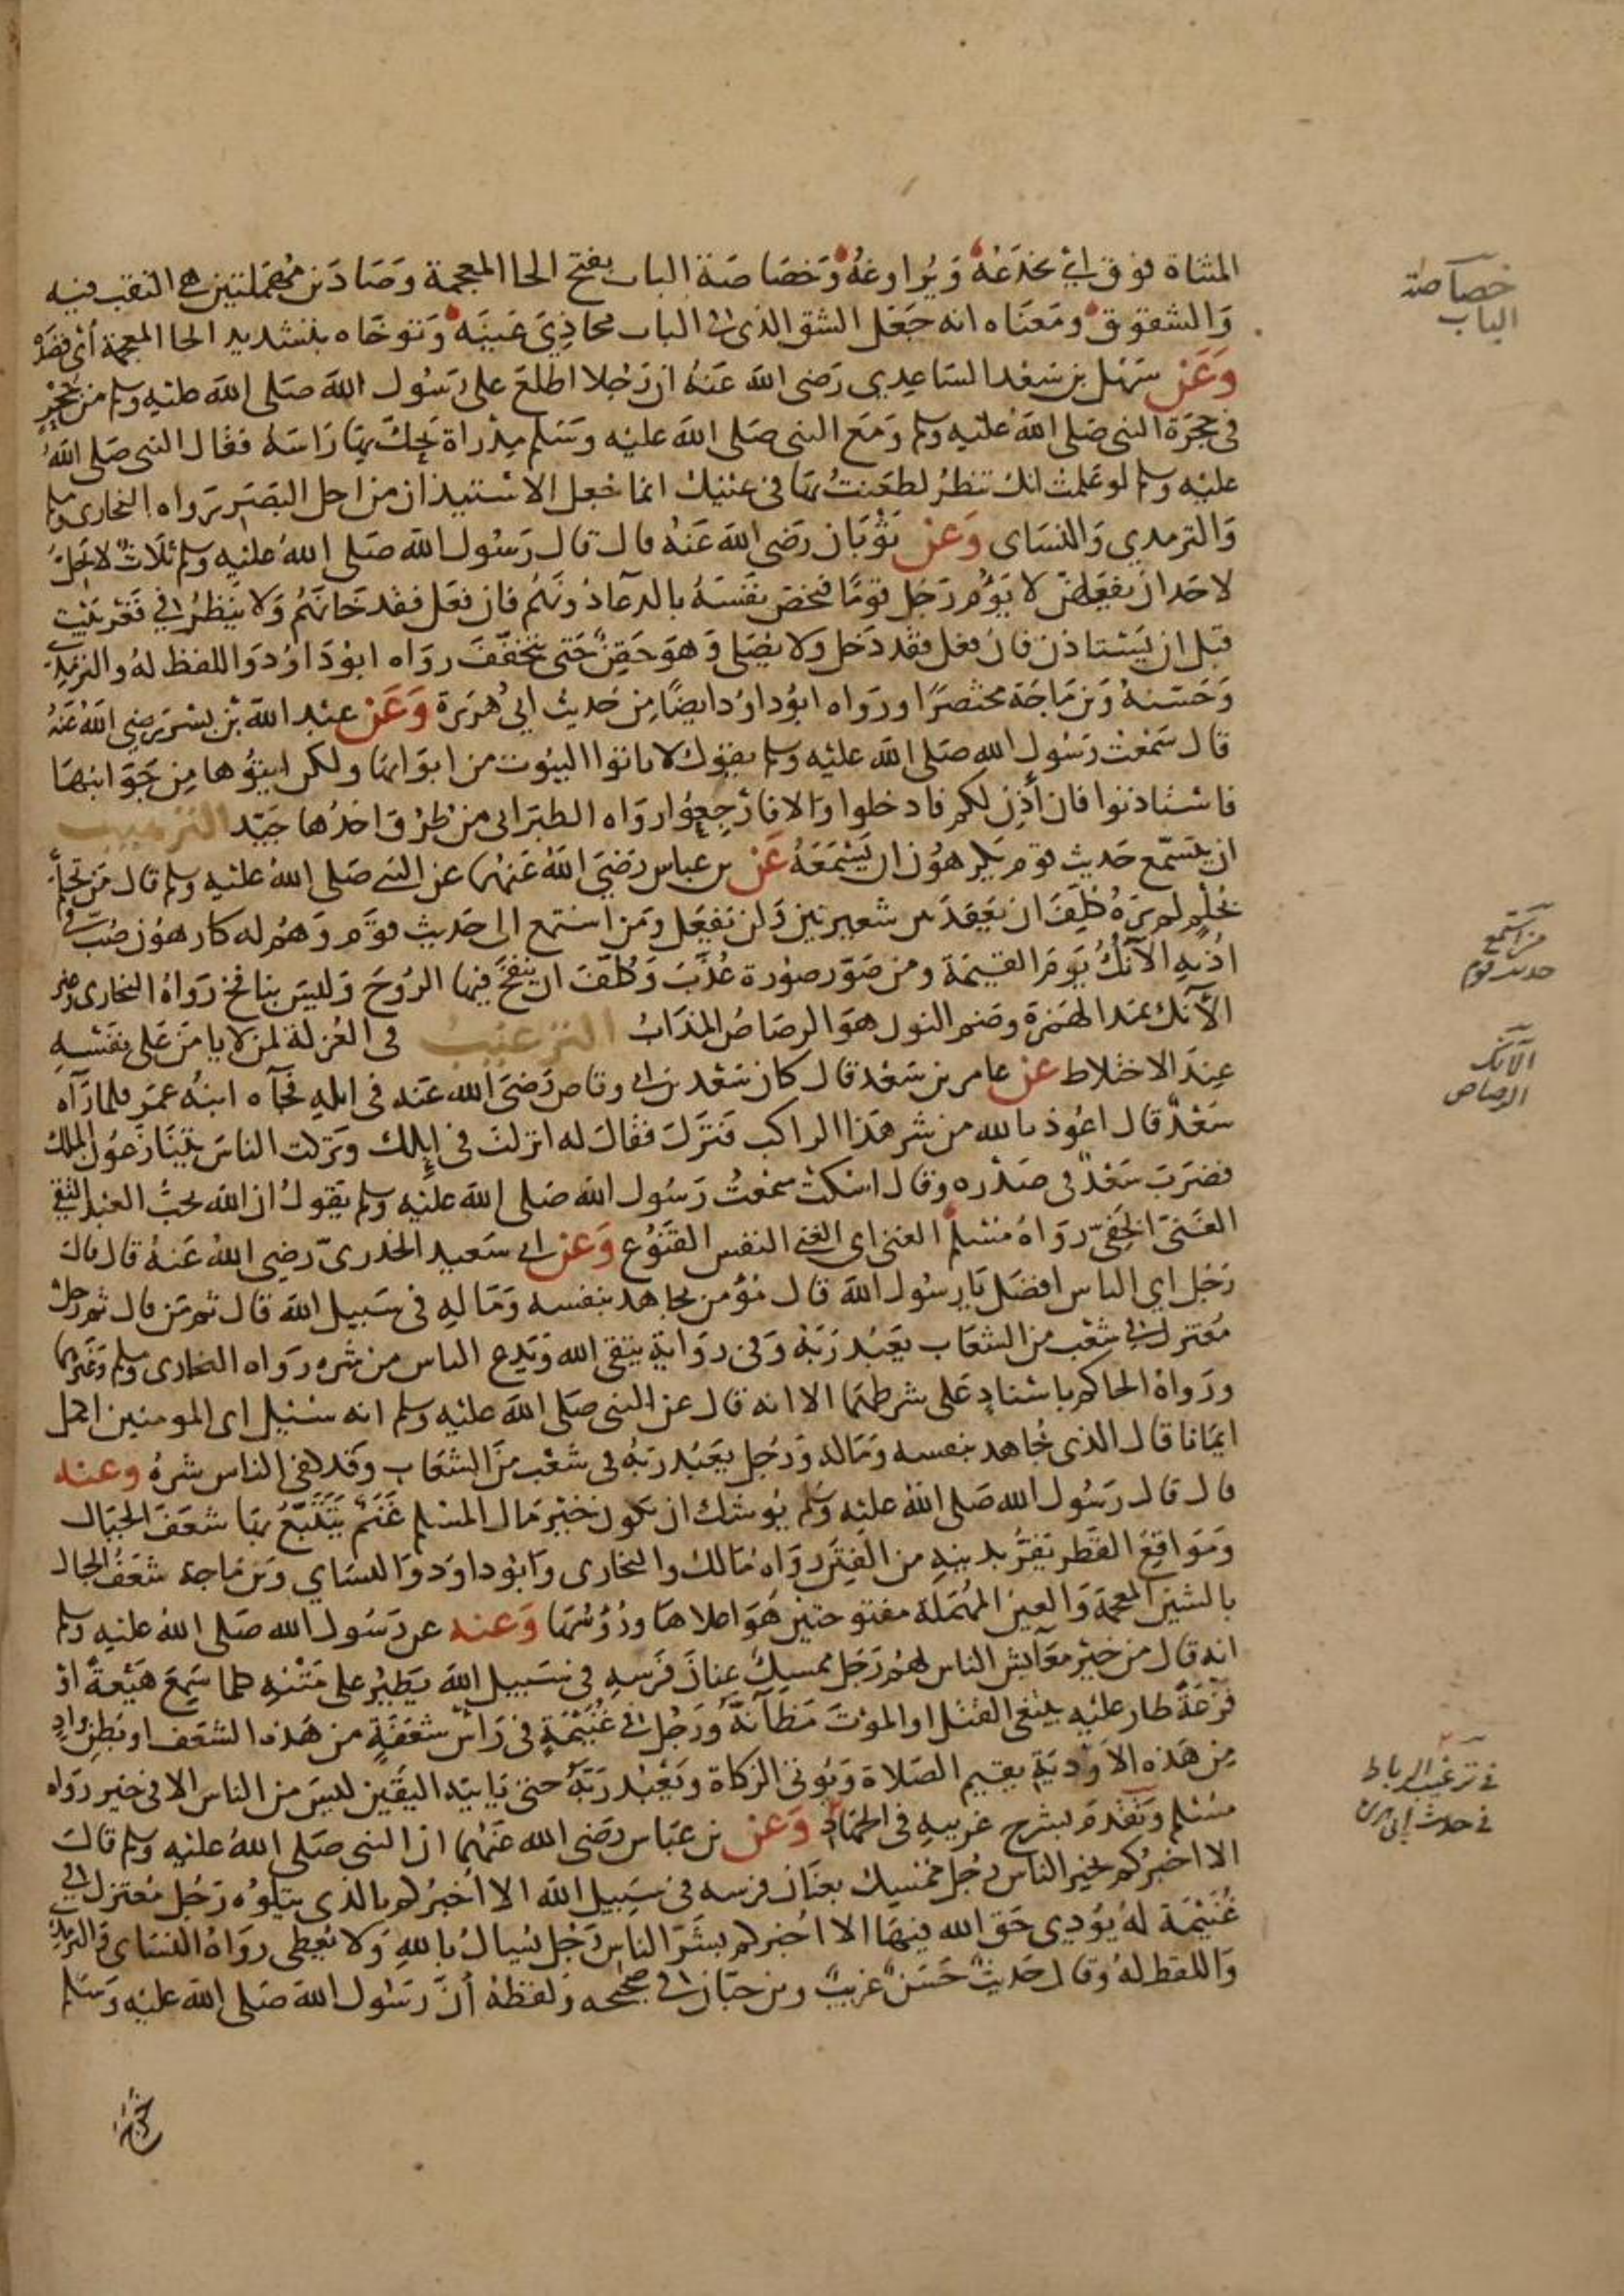 المثناة فوق اي يخدعه ويراوغه وخصاصة الباب بفتح الخا المعجمة وصادين مهملتين هي الثقب فيه
والشقوق ومعناه انه جعل الشق الذي في الباب محاذي عينيه وتوخاه بتشديد الخا المعجمة أي قصده
وعن سهل بن سعد الساعدي رضي الله عنه ان رجلا اطلع على رسول الله صلى الله عليه وسلم من جحر
في حجرة النبي صلى الله عليه وسلم ومع النبي صلى الله عليه وسلم مدراة يحك بها راسه فقال النبي صلى الله
عليه وسلم لو علمت انك تنظر لطعنت بها في عينيك انما جعل الاستيذان من اجل البصر رواه البخاري ومسلم
والترمدي والنساى وعن ثوبان رضي الله عنه قال قال رسول الله صلى الله عليه وسلم ثلاث لا يحل
لاحد ان يفعلهن لا يؤم رجل قوما فيخص نفسه بالدعاء دونهم فان فعل فقد خانهم ولا ينظر في قعر بيت
قبل ان يستاذن فان فعل فقد دخل ولا يصلي وهو حقن حتى يتخفف رواه ابو داود واللفظ له والترمدي
وحسنه وبن ماجة مختصرا ورواه ابو داود ايضا من حديث ابي هريرة وعن عبد الله بن بسر رضي الله عنه
قال سمعت رسول الله صلى الله عليه وسلم يقول لا تاتوا البيوت من ابوابها ولكن ايتوها من جوانبها
فاستاذنوا فان أذن لكم فادخلوا والا فارجعوا رواه الطبراني من طرق احدها جيد الترهيب
ان يتسمع حديث قوم يكرهون ان يسمعه عن بن عباس رضي الله عنهما عن النبي صلى الله عليه وسلم قال من تحلم
بحلم لم يره كلف ان يعقد بين شعيرتين ولن يفعل ومن استمع الى حديث قوم وهم له كارهون صب في
اذنيه الآنك يوم القيمة ومن صور صورة عذب وكلف ان ينفخ فيها الروح وليس بنافخ رواه البخاري وغيره
الآنك بمد الهمزة وضم النون هو الرصاص المذاب الترغيب في العزلة لمن لا يامن على نفسه
عند الاختلاط عن عامر بن سعد قال كان سعد بن ابي وقاص رضي الله عنه في ابله فجآه ابنه عمر فلما رآه
سعد قال اعوذ بالله من شر هذا الراكب فنزل فقال له انزلت في إبلك وتركت الناس يتنازعون الملك
فضرب سعد في صدره وقال اسكت سمعت رسول الله صلى الله عليه وسلم يقول ان الله يحب العبد التقي
الغني الخفي رواه مسلم الغني اي الغني النفس القنوع وعن ابي سعيد الخدري رضي الله عنه قال قال
رجل اي الناس افضل يا رسول الله قال مؤمن يجاهد بنفسه وماله في سبيل الله قال ثم من قال ثم رجل
معتزل في شعب من الشعاب يعبد ربه وفي رواية يتقي الله ويدع الناس من شره رواه البخاري ومسلم وغيرهما
ورواه الحاكم باسناد على شرطهما الا انه قال عن النبي صلى الله عليه وسلم انه سئل اي المومنين اكمل
ايمانا قال الذي يجاهد بنفسه وماله ورجل يعبد ربه في شعب من الشعاب وقد كفى الناس شره وعنه
قال قال رسول الله صلى الله عليه وسلم يوشك ان يكون خير مال المسلم غنم يتتبع بها شعف الجبال
ومواقع القطر يفر بدينه من الفتن رواه مالك والبخاري وابو داود والنساي وبن ماجة شعف الجبال
بالشين المعجمة والعين المهملة مفتوحتين هو اعلاها ورؤسها وعنه عن رسول الله صلى الله عليه وسلم
انه قال من خير معايش الناس لهم رجل ممسك عنان فرسه في سبيل الله يطير على متنه كلما سمع هيعة او
فزعة طار عليه يبتغي القتل او الموت مظانه ورجل في غنيمة في رأس شعفة من هذه الشعف او بطن واد
من هذه الاودية يقيم الصلاة ويؤتي الزكاة ويعبد ربه حتى ياتيه اليقين ليس من الناس الا في خير رواه
مسلم وتقدم بشرح غريبه في الجهاد وعن بن عباس رضي الله عنهما ان النبي صلى الله عليه وسلم قال
الا اخبركم بخير الناس رجل ممسك بعنان فرسه في سبيل الله الا أخبركم بالذي يتلوه رجل معتزل في
غنيمة له يؤدي حق الله فيها الا اخبركم بشر الناس رجل يسال بالله ولا يعطى رواه النساى والترمدي
واللفظ له وقال حديث حسن غريب وبن حبان في صحيحه ولفظه أن رسول الله صلى الله عليه وسلم
خصاصة
الباب
من استمع
حديث قوم
الآنك
الرصاص
في ترغيب الرباط
في حديث ابي هريرة